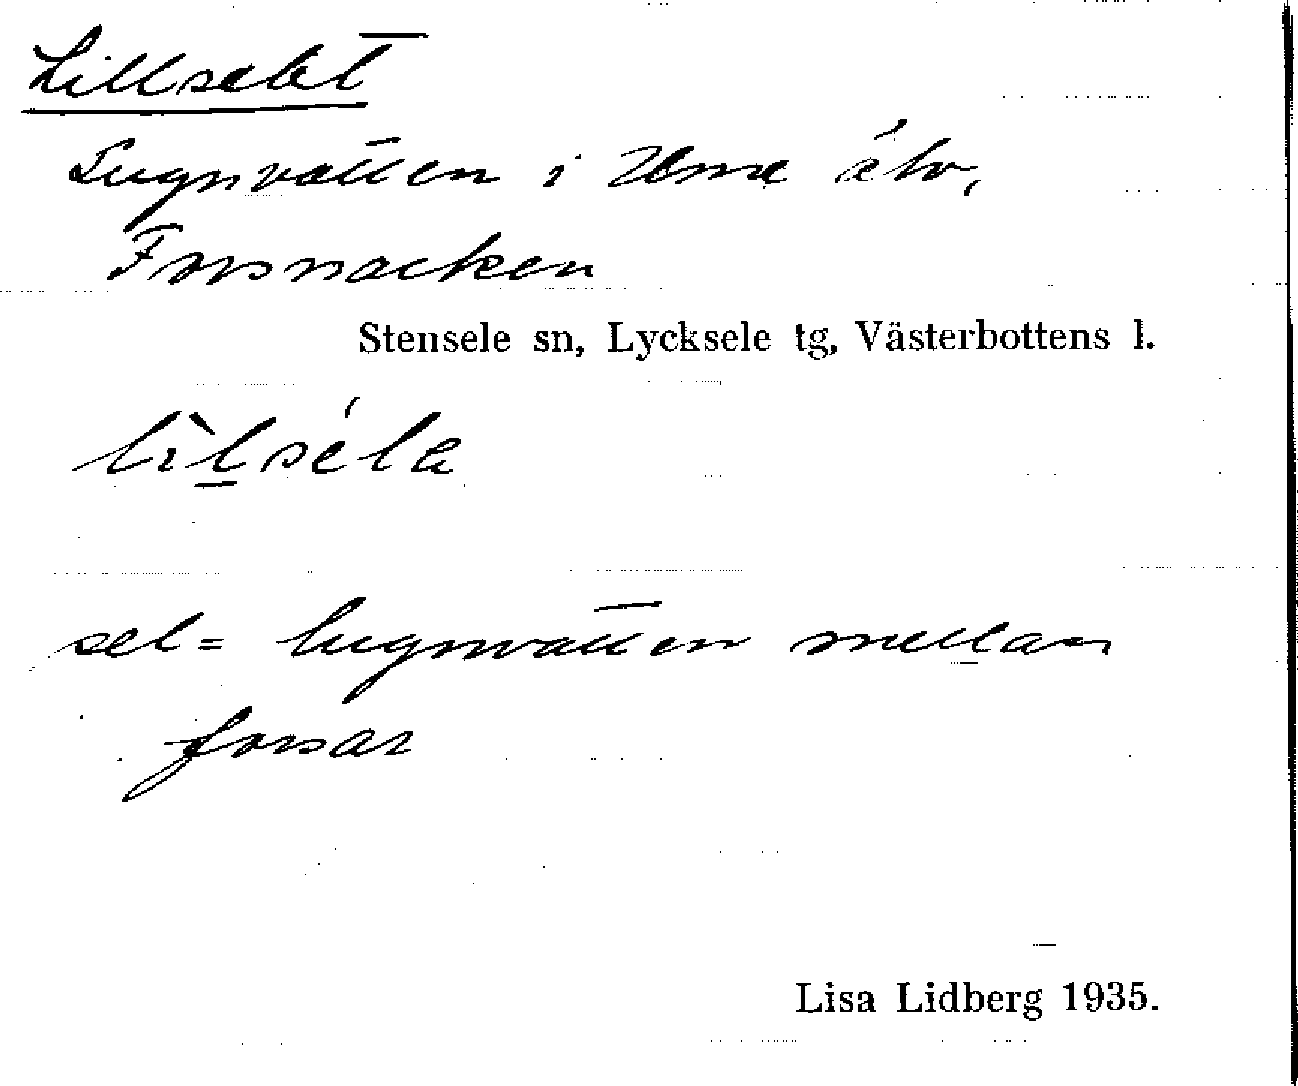 Lillselet
Lugnvatten i Ume älv,
Forsnacken
Stensele sn, Lycksele tg, Västerbottens l.
lìlséla
sel = lugnvatten mellan
forsar
Lisa Lidberg 1935.